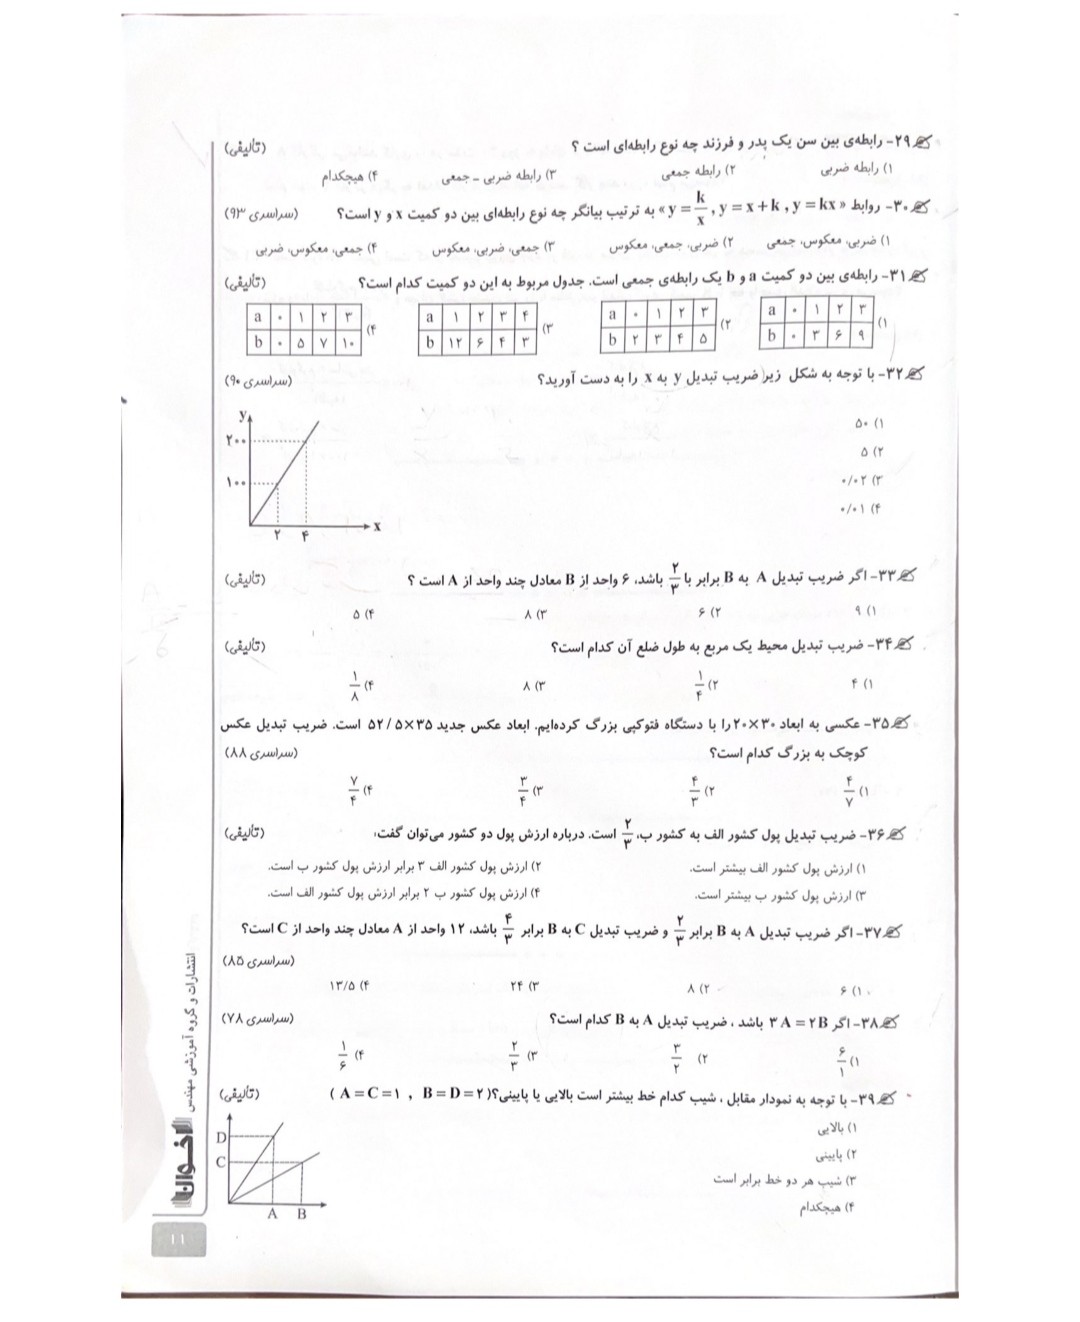 ۲۹- رابطه‌ی بین سن یک پدر و فرزند چه نوع رابطه‌ای است ؟ (تألیفی)
۱) رابطه ضربی ۲) رابطه جمعی ۳) رابطه ضربی - جمعی ۴) هیچکدام
۳۰- روابط « y = kx , y = x + k , y = k/x » به ترتیب بیانگر چه نوع رابطه‌ای بین دو کمیت x و y است؟ (سراسری ۹۳)
۱) ضربی، معکوس، جمعی ۲) ضربی، جمعی، معکوس ۳) جمعی، ضربی، معکوس ۴) جمعی، معکوس، ضربی
۳۱- رابطه‌ی بین دو کمیت a و b یک رابطه‌ی جمعی است. جدول مربوط به این دو کمیت کدام است؟ (تألیفی)
۱) a ۰ ۱ ۲ ۳ ۲) a ۰ ۱ ۲ ۳ ۳) a ۱ ۲ ۳ ۴ ۴) a ۰ ۱ ۲ ۳
b ۰ ۳ ۶ ۹ b ۲ ۳ ۴ ۵ b ۱۲ ۶ ۴ ۳ b ۰ ۵ ۷ ۱۰
۳۲- با توجه به شکل زیر ضریب تبدیل y به x را به دست آورید؟ (سراسری ۹۰)
۱) ۵۰
۲) ۵
۳) ۰/۰۲
۴) ۰/۰۱
y
۲۰۰
۱۰۰
۲ ۴ x
۳۳- اگر ضریب تبدیل A به B برابر با ۲/۳ باشد، ۶ واحد از B معادل چند واحد از A است ؟ (تألیفی)
۱) ۹ ۲) ۶ ۳) ۸ ۴) ۵
۳۴- ضریب تبدیل محیط یک مربع به طول ضلع آن کدام است؟ (تألیفی)
۱) ۴ ۲) ۱/۴ ۳) ۸ ۴) ۱/۸
۳۵- عکسی به ابعاد ۲۰×۳۰ را با دستگاه فتوکپی بزرگ کرده‌ایم. ابعاد عکس جدید ۵۲/۵×۳۵ است. ضریب تبدیل عکس
کوچک به بزرگ کدام است؟ (سراسری ۸۸)
۱) ۴/۷ ۲) ۴/۳ ۳) ۳/۴ ۴) ۷/۴
۳۶- ضریب تبدیل پول کشور الف به کشور ب، ۲/۳ است. درباره ارزش پول دو کشور می‌توان گفت، (تألیفی)
۱) ارزش پول کشور الف بیشتر است. ۲) ارزش پول کشور الف ۳ برابر ارزش پول کشور ب است.
۳) ارزش پول کشور ب بیشتر است. ۴) ارزش پول کشور ب ۲ برابر ارزش پول کشور الف است.
۳۷- اگر ضریب تبدیل A به B برابر ۲/۳ و ضریب تبدیل C به B برابر ۴/۳ باشد، ۱۲ واحد از A معادل چند واحد از C است؟
(سراسری ۸۵)
۱) ۶ ۲) ۸ ۳) ۲۴ ۴) ۱۳/۵
۳۸- اگر ۳A = ۲B باشد ، ضریب تبدیل A به B کدام است؟ (سراسری ۷۸)
۱) ۶/۱ ۲) ۳/۲ ۳) ۲/۳ ۴) ۱/۶
۳۹- با توجه به نمودار مقابل ، شیب کدام خط بیشتر است بالایی یا پایینی؟( A = C = ۱ , B = D = ۲ ) (تألیفی)
۱) بالایی
۲) پایینی
۳) شیب هر دو خط برابر است
۴) هیچکدام
D
C
A B
انتشارات و گروه آموزشی مهندس
اخوان
۱۱